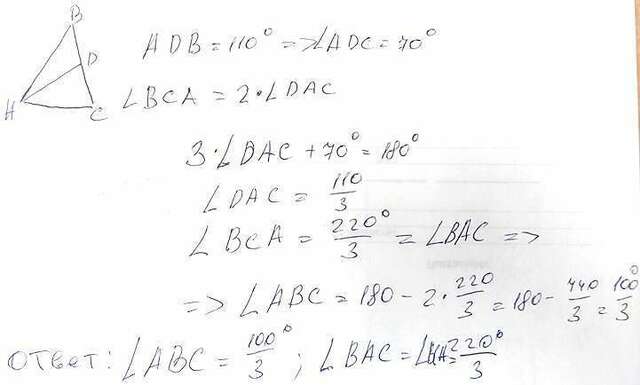 B
ADB = 110° => ∠ADC = 70°
D
∠BCA = 2·∠DAC
H C
3·∠DAC + 70° = 180°
∠DAC = 110/3
∠BCA = 220°/3 = ∠BAC =>
=> ∠ABC = 180 - 2·220/3 = 180 - 440/3 = 100°/3
Ответ: ∠ABC = 100°/3 ; ∠BAC = 220°/3